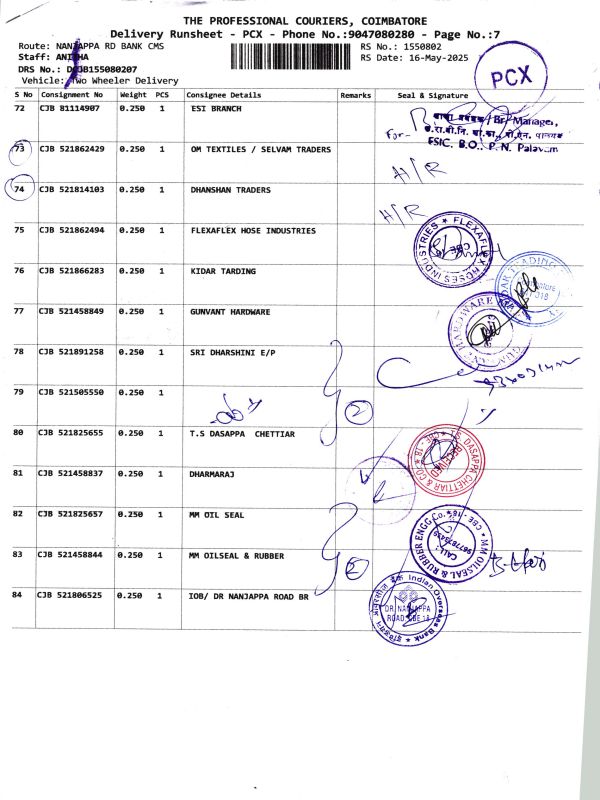 THE PROFESSIONAL COURIERS, COIMBATORE
Delivery Runsheet - PCX - Phone No.:9047080280 - Page No.:7
Route: NANJAPPA RD BANK CMS
RS No.: 1550802
Staff: ANITHA
RS Date: 16-May-2025
DRS No.: DCJB155080207
Vehicle: Two Wheeler Delivery
PCX
S No Consignment No Weight PCS Consignee Details Remarks Seal & Signature
72 CJB 81114907 0.250 1 ESI BRANCH
For- शाखा प्रबंधक / Br. Manager,
ESIC, B.O., P.N. Palayam
73 CJB 521862429 0.250 1 OM TEXTILES / SELVAM TRADERS H/R
74 CJB 521814103 0.250 1 DHANSHAN TRADERS H/R
75 CJB 521862494 0.250 1 FLEXAFLEX HOSE INDUSTRIES
FLEXAFLEX HOSES INDUSTRIES CBE
76 CJB 521866283 0.250 1 KIDAR TARDING
77 CJB 521458849 0.250 1 GUNVANT HARDWARE
78 CJB 521891258 0.250 1 SRI DHARSHINI E/P
79 CJB 521505550 0.250 1
2
80 CJB 521825655 0.250 1 T.S DASAPPA CHETTIAR
T.S. DASAPPA CHETTIAR & CO CBE - 18
RECEIVED
81 CJB 521458837 0.250 1 DHARMARAJ
82 CJB 521825657 0.250 1 MM OIL SEAL
MM OILSEAL & RUBBER ENGG Co. CBE - 18
CALL:
83 CJB 521458844 0.250 1 MM OILSEAL & RUBBER
2
84 CJB 521806525 0.250 1 IOB/ DR NANJAPPA ROAD BR
Indian Overseas Bank
DR NANJAPPA
ROAD CBE 18